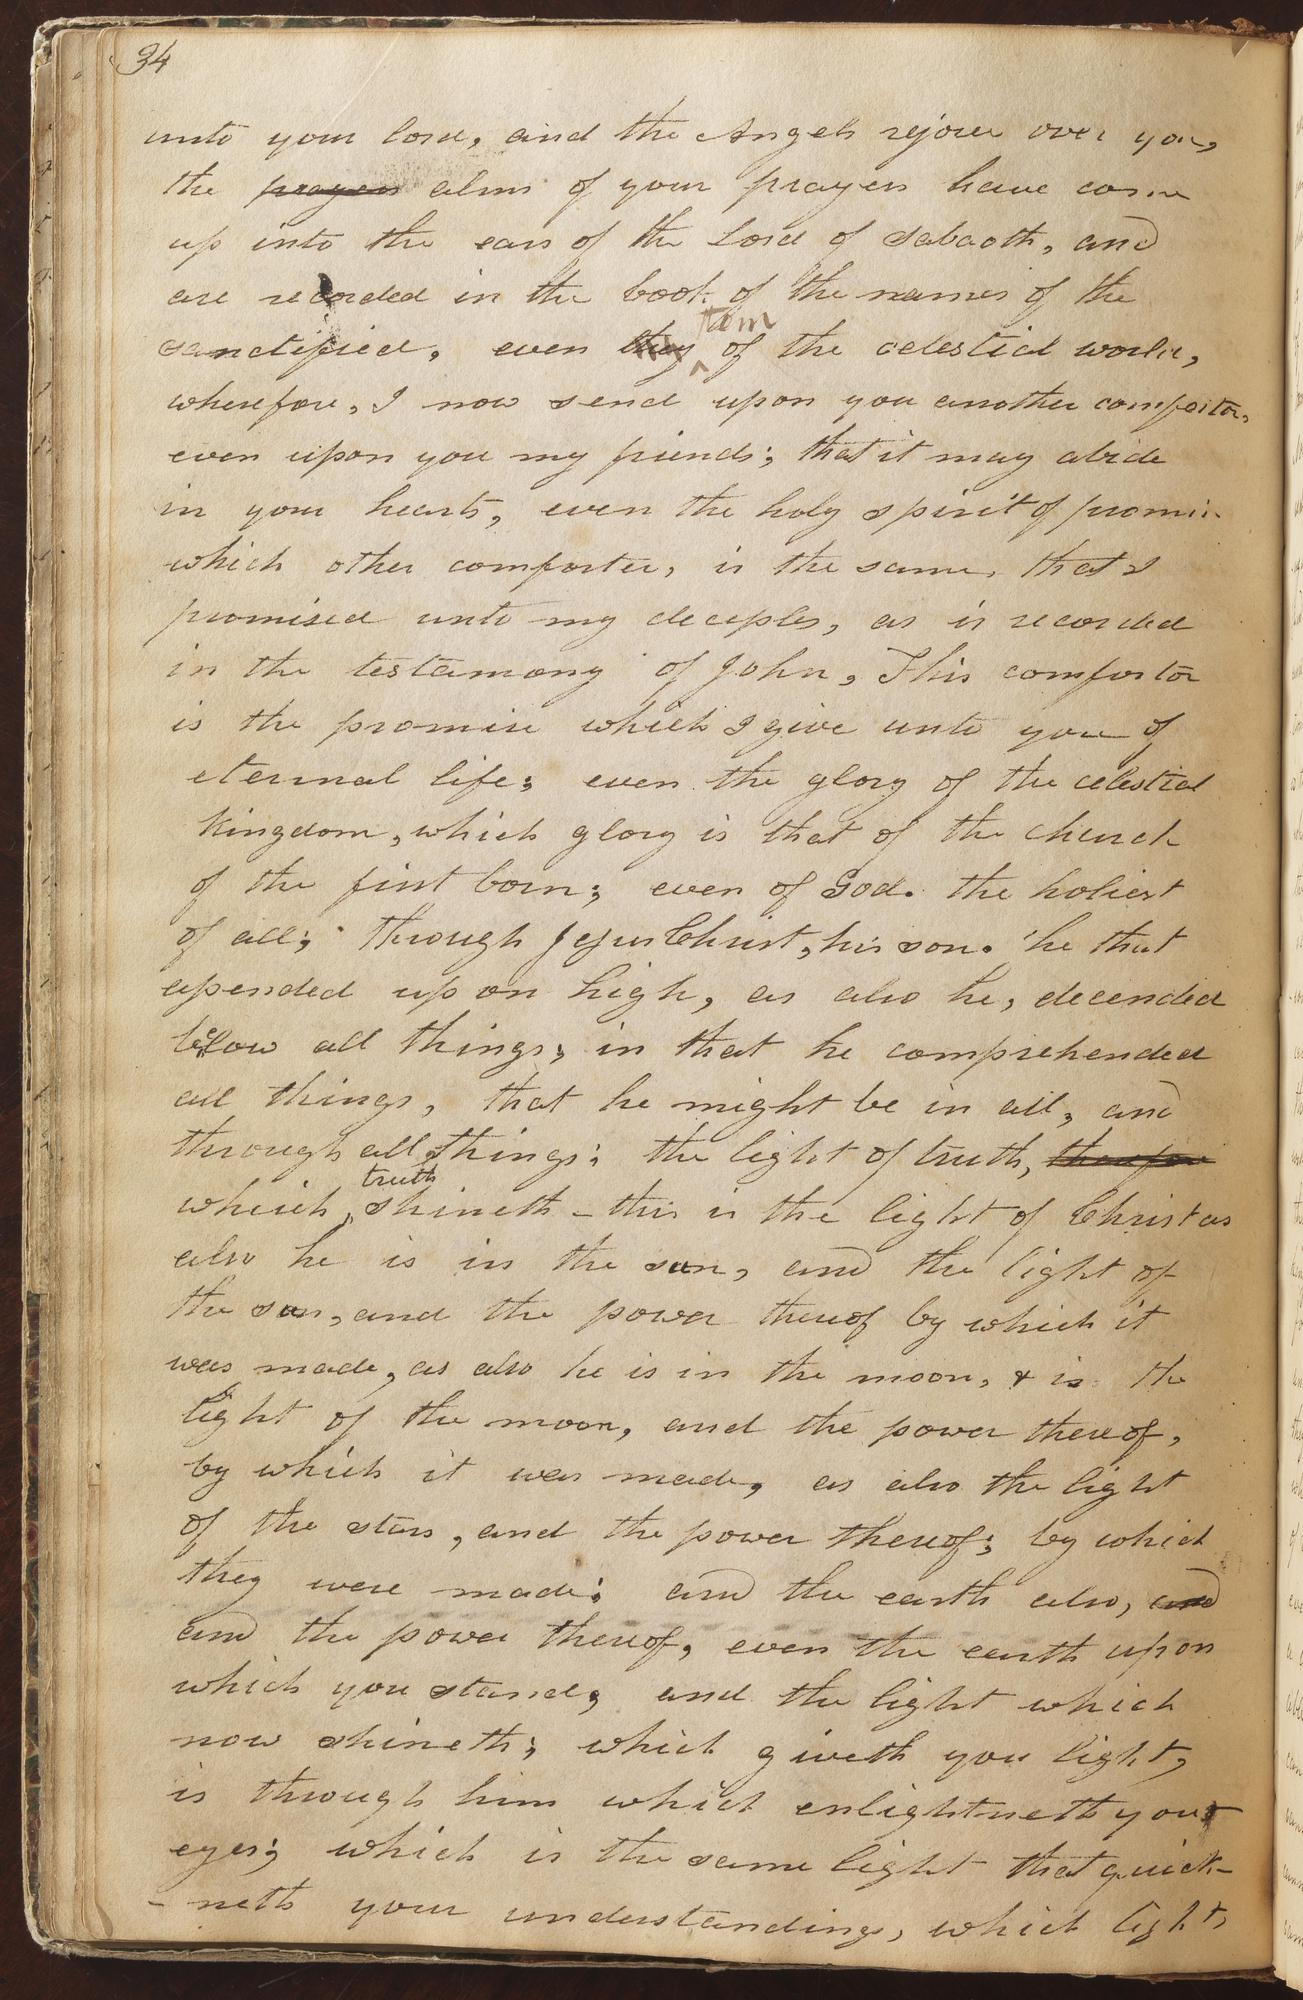 34
unto your lord, and the Angels rejoice over you,
the prayers alms of your prayers have come
up into the ears of the Lord of Sabaoth, and
are recorded in the book of the names of the
sanctified, even they them of the celestial world,
wherefore, I now send upon you another comforter,
even upon you my friends; that it may abide
in your hearts, even the holy spirit of promise
which other comforter, is the same, that I
promised unto my deciples, as is recorded
in the testamony of John, This comfortor
is the promise which I give unto you of
eternal life; even the glory of the celestial
Kingdom, which glory is that of the church
of the first born; even of God. the holiest
of all; through Jesus Christ, his son. he that
assended up on high, as also he, decended
below all things; in that he comprehended
all things, that he might be in all, and
through all things; the light of truth, therefore
which truth shineth - this is the light of Christ as
also he is in the sun, and the light of
the sun, and the power thereof by which it
was made, as also he is in the moon, & is the
light of the moon, and the power thereof,
by which it was made, as also the light
of the stars, and the power thereof; by which
they were made; and the earth also, and
and the power thereof, even the earth upon
which you stand; and the light which
now shineth; which giveth you light,
is through him which enlightneth your
eyes; which is the same light that quick-
-neth your understandings, which light,